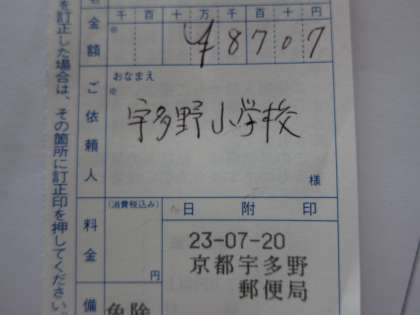 を訂正した場合は、その箇所に訂正印を押してください。
金額
千 百 十 万 千 百 十 円
※
¥8707
ご依頼人
おなまえ
※
宇多野小学校
様
料金
(消費税込み)
円
日附印
23-07-20
京都宇多野
郵便局
備
免除